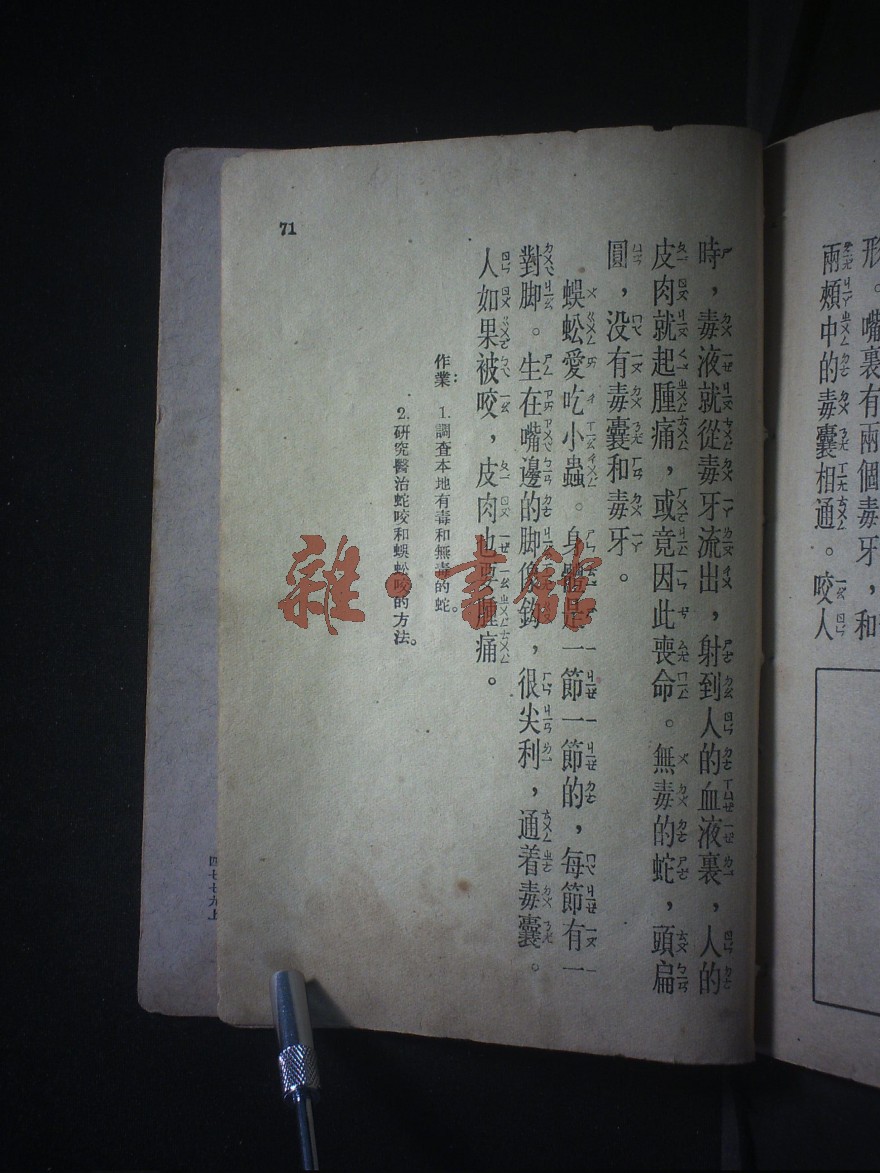 形。嘴裏有兩個毒牙,和
兩頰中的毒囊相通。咬人
時,毒液就從毒牙流出,射到人的血液裏,人的
皮肉就起腫痛,或竟因此喪命。無毒的蛇,頭扁
圓,没有毒囊和毒牙。
蜈蚣愛吃小蟲。身體是一節一節的,每節有一
對脚。生在嘴邊的脚像鈎,很尖利,通着毒囊。
人如果被咬,皮肉也要腫痛。
作業:1.調查本地有毒和無毒的蛇。
2.研究醫治蛇咬和蜈蚣咬的方法。
71
四七七九上
雜·書館